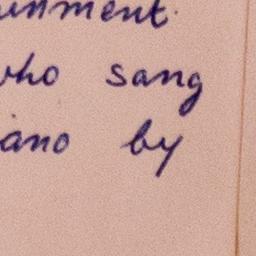 unment.
who sang
iano by